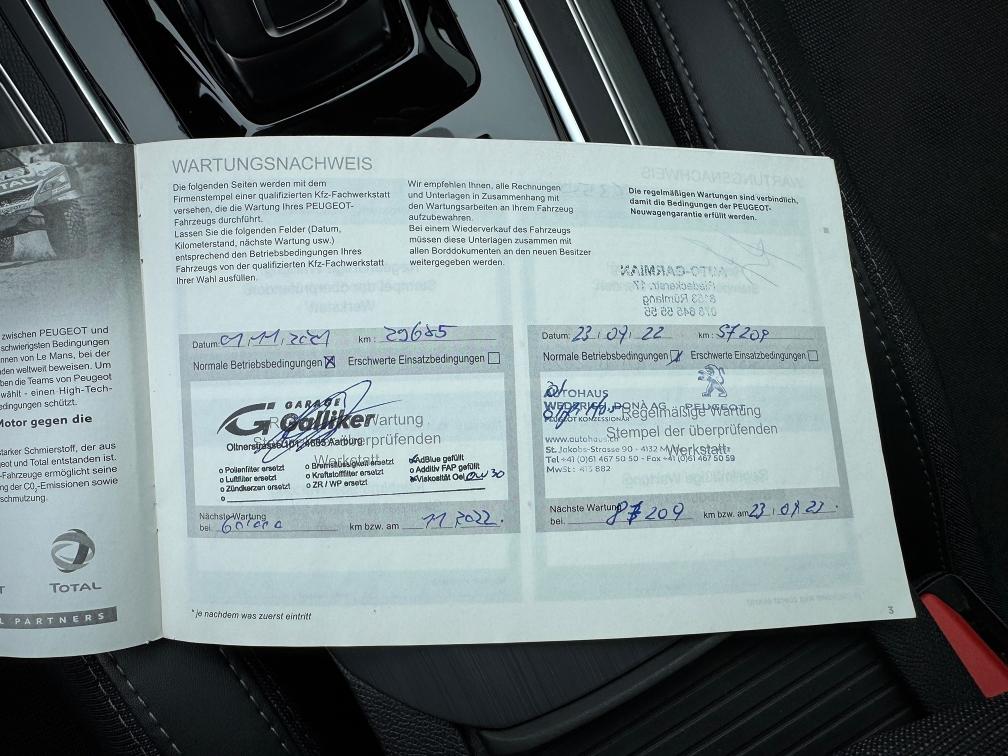 WARTUNGSNACHWEIS
Die folgenden Seiten werden mit dem
Firmenstempel einer qualifizierten Kfz-Fachwerkstatt
versehen, die die Wartung Ihres PEUGEOT-
Fahrzeugs durchführt.
Lassen Sie die folgenden Felder (Datum,
Kilometerstand, nächste Wartung usw.)
entsprechend den Betriebsbedingungen Ihres
Fahrzeugs von der qualifizierten Kfz-Fachwerkstatt
Ihrer Wahl ausfüllen.
Wir empfehlen Ihnen, alle Rechnungen
und Unterlagen in Zusammenhang mit
den Wartungsarbeiten an Ihrem Fahrzeug
aufzubewahren.
Bei einem Wiederverkauf des Fahrzeugs
müssen diese Unterlagen zusammen mit
allen Borddokumenten an den neuen Besitzer
weitergegeben werden.
Die regelmäßigen Wartungen sind verbindlich,
damit die Bedingungen der PEUGEOT-
Neuwagengarantie erfüllt werden.
Datum: 01.11.2021 km: 29685
Normale Betriebsbedingungen Erschwerte Einsatzbedingungen
GARAGE
Galliker
Regelmäßige Wartung
Stempel der überprüfenden
Werkstatt
Oltnerstrasse 101, 4663 Aarburg
o Pollenfilter ersetzt
o Luftfilter ersetzt
o Zündkerzen ersetzt
o Bremsflüssigkeit ersetzt
o Kraftstofffilter ersetzt
o ZR / WP ersetzt
AdBlue gefüllt
Additiv FAP gefüllt
Viskosität Oel 0W30
Nächste Wartung
bei km bzw. am 11.2022.
Datum: 23.09.22 km: 57209
Normale Betriebsbedingungen Erschwerte Einsatzbedingungen
AUTOHAUS
DONA AG PEUGEOT
PEUGEOT KONZESSIONÄR
Regelmäßige Wartung
Stempel der überprüfenden
Werkstatt
www.autohaus
St. Jakobs-Strasse 90 - 4132 M
Tel +41 (0)61 467 50 50 - Fax +41 (0)61 467 50 59
MwSt: 415 882
Nächste Wartung
bei. 87209 km bzw. am 23.09.23
*je nachdem was zuerst eintritt
3
zwischen PEUGEOT und
schwierigsten Bedingungen
nnen von Le Mans, bei der
den weltweit beweisen. Um
ben die Teams von Peugeot
wählt - einen High-Tech-
edingungen schützt.
Motor gegen die
tarker Schmierstoff, der aus
geot und Total entstanden ist.
-Fahrzeuge ermöglicht seine
ng der CO₂-Emissionen sowie
schmutzung.
TOTAL
L PARTNERS